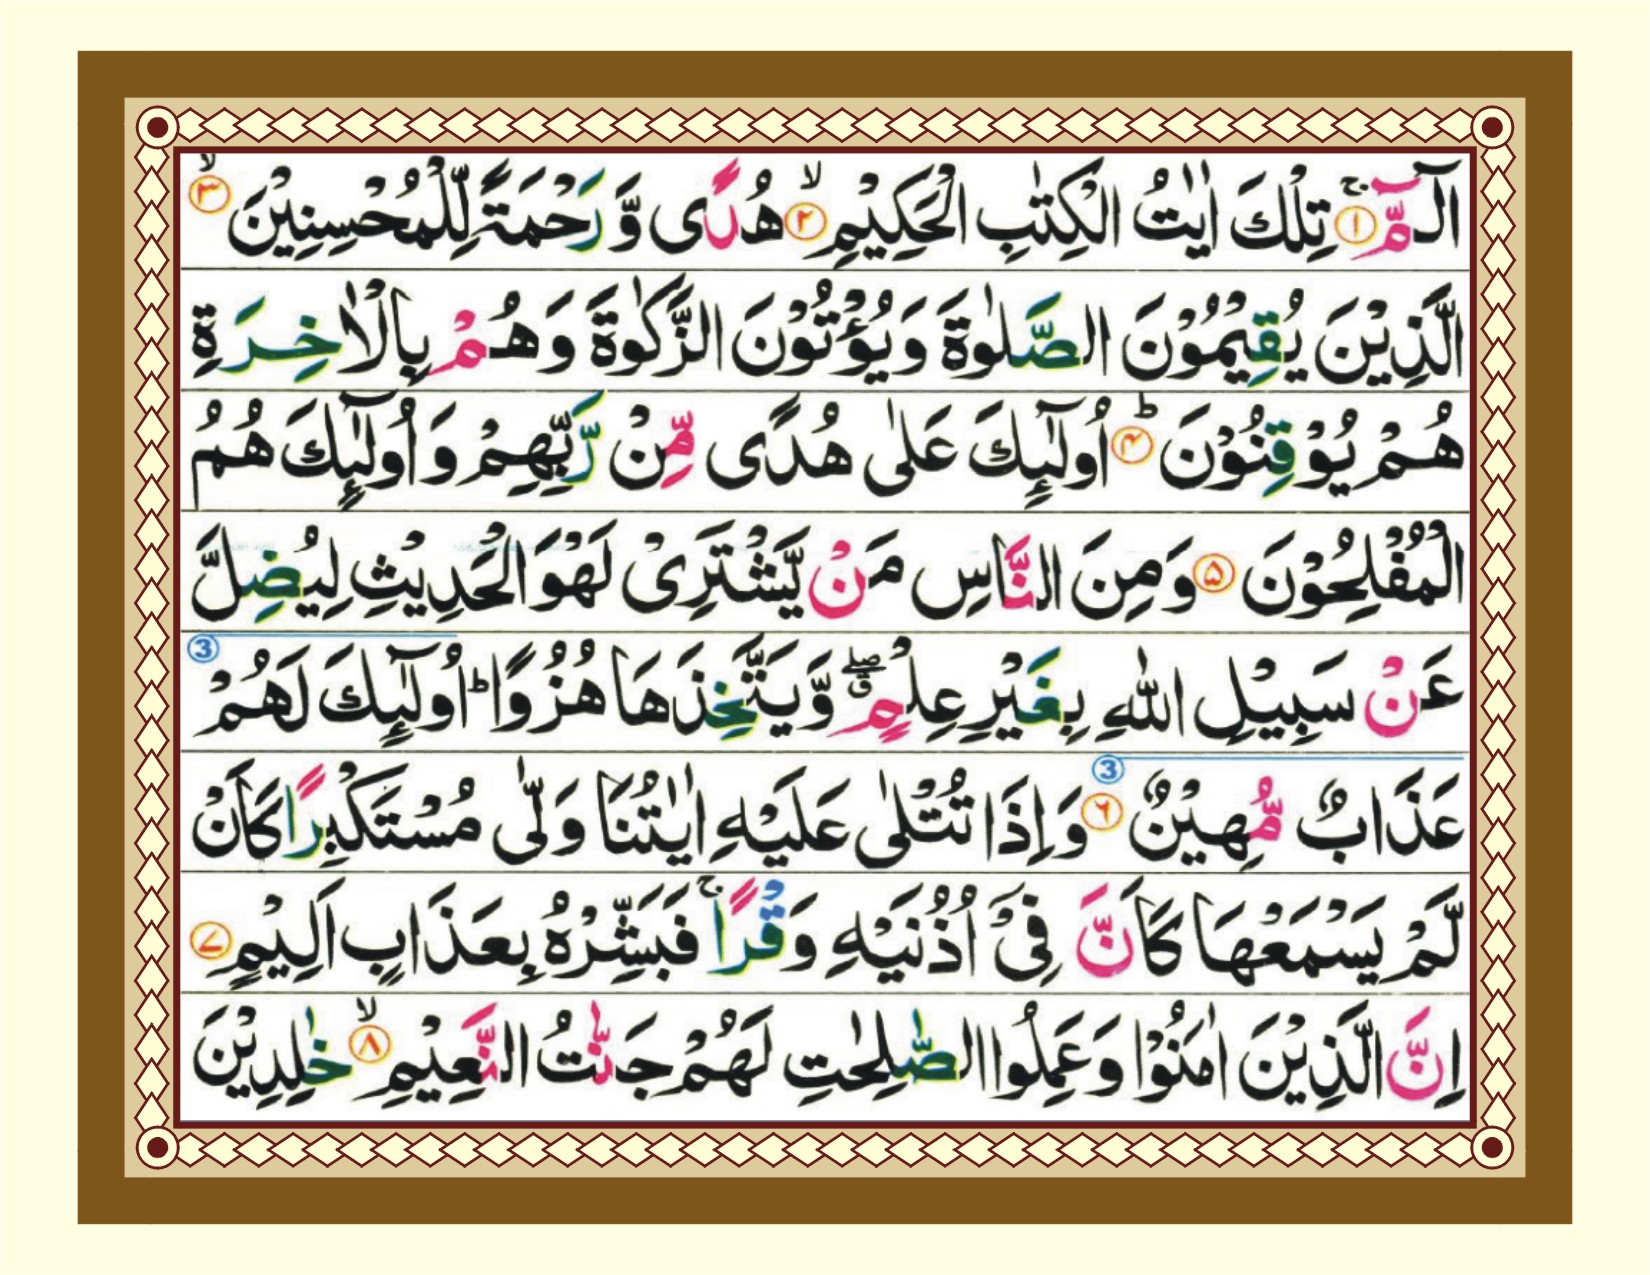 الٓـمّٓ ۚ ﴿۱﴾ تِلْكَ اٰیٰتُ الْكِتٰبِ الْحَكِیْمِ ۙ ﴿۲﴾ هُدًی وَّ رَحْمَةً لِّلْمُحْسِنِیْنَ ۙ ﴿۳﴾
الَّذِیْنَ یُقِیْمُوْنَ الصَّلٰوةَ وَیُؤْتُوْنَ الزَّكٰوةَ وَهُمْ بِالْاٰخِرَةِ
هُمْ یُوْقِنُوْنَ ؕ ﴿۴﴾ اُولٰٓىِٕكَ عَلٰی هُدًی مِّنْ رَّبِّهِمْ وَ اُولٰٓىِٕكَ هُمُ
الْمُفْلِحُوْنَ ﴿۵﴾ وَمِنَ النَّاسِ مَنْ یَّشْتَرِیْ لَهْوَ الْحَدِیْثِ لِیُضِلَّ
عَنْ سَبِیْلِ اللّٰهِ بِغَیْرِ عِلْمٍ ۖق وَّ یَتَّخِذَهَا هُزُوًا ؕ اُولٰٓىِٕكَ لَهُمْ 3
عَذَابٌ مُّهِیْنٌ 3 ﴿۶﴾ وَ اِذَا تُتْلٰی عَلَیْهِ اٰیٰتُنَا وَلّٰی مُسْتَكْبِرًا كَاَنْ
لَّمْ یَسْمَعْهَا كَاَنَّ فِیْۤ اُذُنَیْهِ وَقْرًا ۚ فَبَشِّرْهُ بِعَذَابٍ اَلِیْمٍ ﴿۷﴾
اِنَّ الَّذِیْنَ اٰمَنُوْا وَعَمِلُوا الصّٰلِحٰتِ لَهُمْ جَنّٰتُ النَّعِیْمِ ۙ ﴿۸﴾ خٰلِدِیْنَ